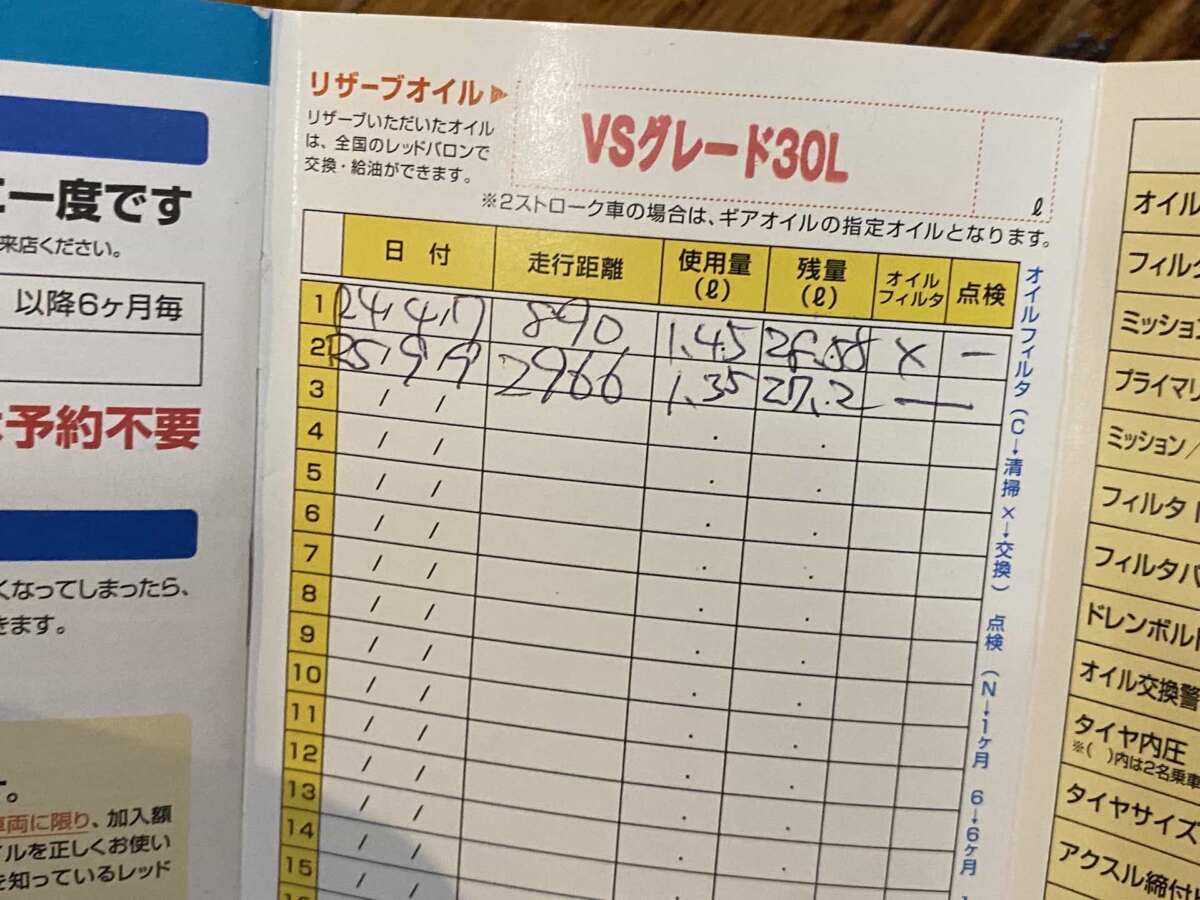 に一度です
来店ください。
以降6ヶ月毎
予約不要
くなってしまったら、
きます。
す。
車両に限り、加入額
イルを正しくお使い
を知っているレッド
リザーブオイル▶
リザーブいただいたオイル
は、全国のレッドバロンで
交換・給油ができます。
VSグレード30L
ℓ
※2ストローク車の場合は、ギアオイルの指定オイルとなります。
日付 走行距離 使用量(ℓ) 残量(ℓ) オイルフィルタ 点検
1 24,4,17 890 1.45 28.58 × —
2 25,9,9 2966 1.35 27.2 —
3 / /
4 / / . .
5 / / . .
6 / / . .
7 / / . .
8 / / . .
9 / / . .
10 / / . .
11 / / . .
12 / / . .
13 / / . .
14 / / . .
15 / / . .
オイルフィルタ(C→清掃 ×→交換) 点検(N→1ヶ月 6→6ヶ月
オイル
フィルタ
ミッション
プライマリ
ミッション/
フィルタ
フィルタパ
ドレンボルト
オイル交換警
タイヤ内圧
※( )内は2名乗車
タイヤサイズ
アクスル締付